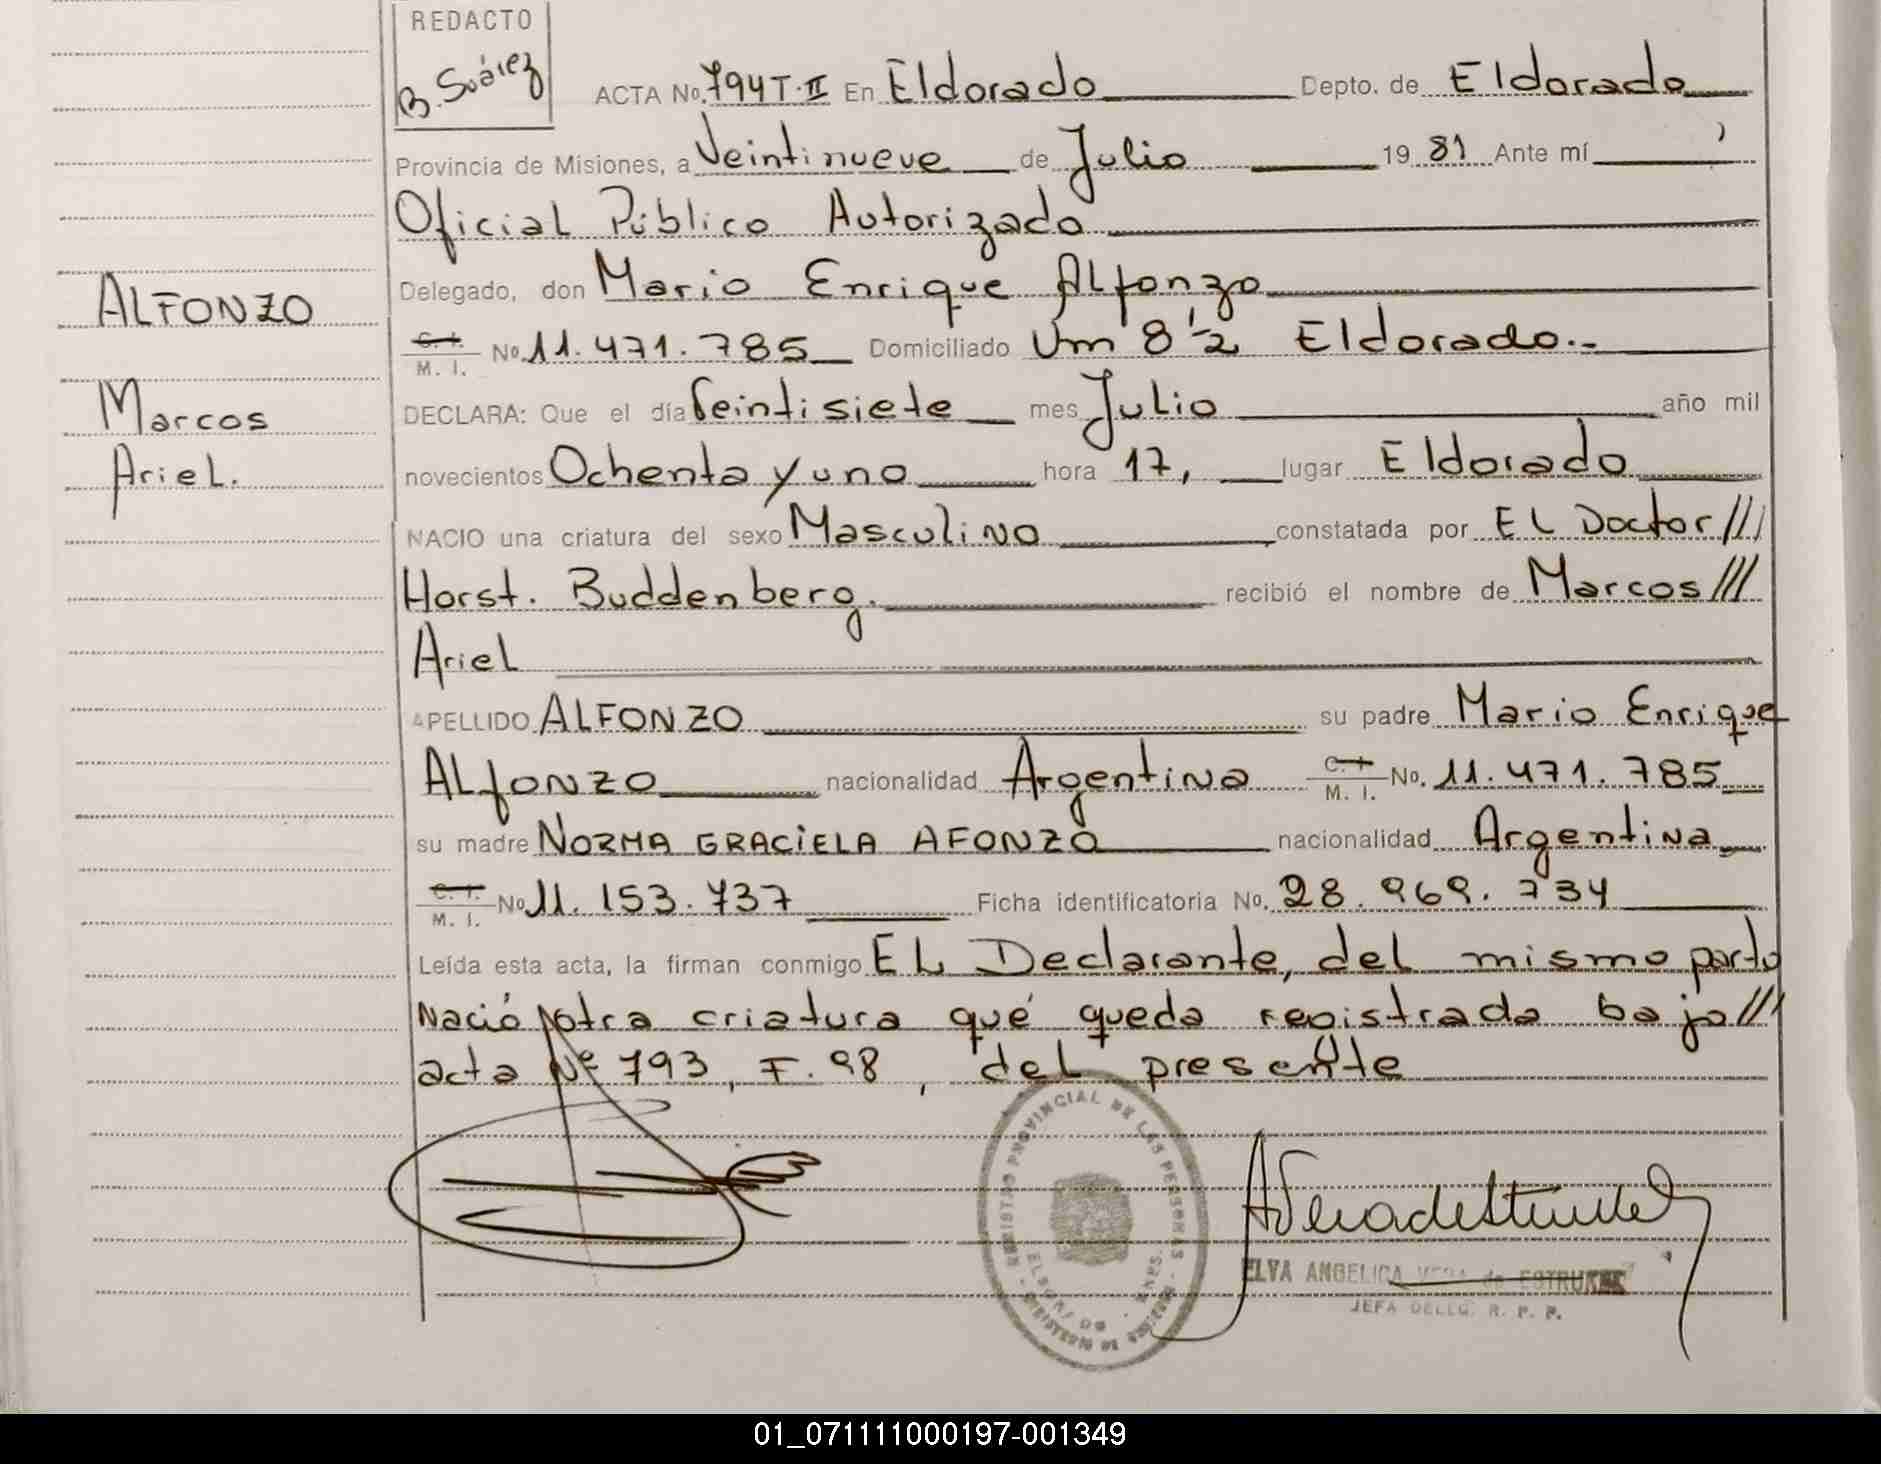 REDACTO
B. Suárez
ACTA No. 794 T. II En Eldorado Depto. de Eldorado
Provincia de Misiones, a Veintinueve de Julio 19 81 Ante mí
Oficial Público Autorizado
Delegado, don Mario Enrique Alfonzo
ALFONZO
C. I. M. I. No. 11.471.785 Domiciliado Km 8 1/2 Eldorado.-
DECLARA: Que el día Veintisiete mes Julio año mil
Marcos
novecientos Ochenta y uno hora 17, lugar Eldorado
Ariel.
NACIO una criatura del sexo Masculino constatada por El Doctor ///
Horst. Buddenberg. recibió el nombre de Marcos ///
Ariel
APELLIDO ALFONZO su padre Mario Enrique
Alfonzo nacionalidad Argentina C. I. M. I. No. 11.471.785
su madre NORMA GRACIELA AFONZO nacionalidad Argentina
C. I. M. I. No 11.153.737 Ficha identificatoria No. 28.969.734
Leída esta acta, la firman conmigo El Declarante, del mismo parto
Nació otra criatura qué queda registrada bajo ///
acta Nº 793, F. 98, del presente
REGISTRO PROVINCIAL DE LAS PERSONAS
ELDORADO - MNES.
ELVA ANGELICA VERA de ESTRUCK
JEFA DELEG. R. P. P.
01_071111000197-001349